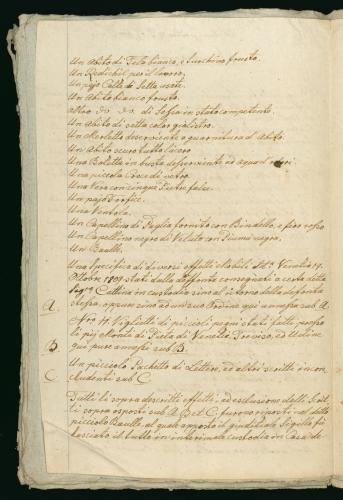 Un Abito di Tela bianco, e turchino frusto.
Un Redichil per il lavoro,
Un pajo Calze di Setta usate.
Un Abito bianco frusto.
Altro do. do. di Sofia in stato competente.
Un Abito di setta color gialistro.
Un Merletto deserviente a guarnitura d'Abito.
Un Abito scuro tutto lacero
Una Boletta in busta deserviente ad aqua d'odori
Una piccola Croce di vetro.
Una Vera con cinque Pietre false.
Un pajo Forfice.
Una Ventola.
Un Capellino di Paglia fornito con Bindello, e fiore rosso
Un Capellino negro di Velluto con Piuma negra.
Un Baulle.
Una Specifica di diversi effetti Mobili Dta. Venezia 19.
Ottobre 1809 stati dalla deffonta consegnati a certa detta
Sigra. Cattina in custodia sino al ritorno della defonta
stessa, oppure sino ad un suo Ordine qui annessa sub A.
A.
Nro. 17. Viglietti di piccoli pegni stati fatti presso
li pij Monti di Pietà di Venezia, Treviso, ed Udine
B. qui pure annessi sub B.
Un picciolo Pachetto di Lettere, ed altri scritti incon
C. cludenti sub C.
Tutti li sopra descritti effetti, ad esclusione delli Scrit
ti sopra esposti sub A. B. et C. furono riposti nel detto
piccolo Baulle, al quale apposto il giudiziale Sigillo fù
lasciato il tutto in interinale custodia in Casa de